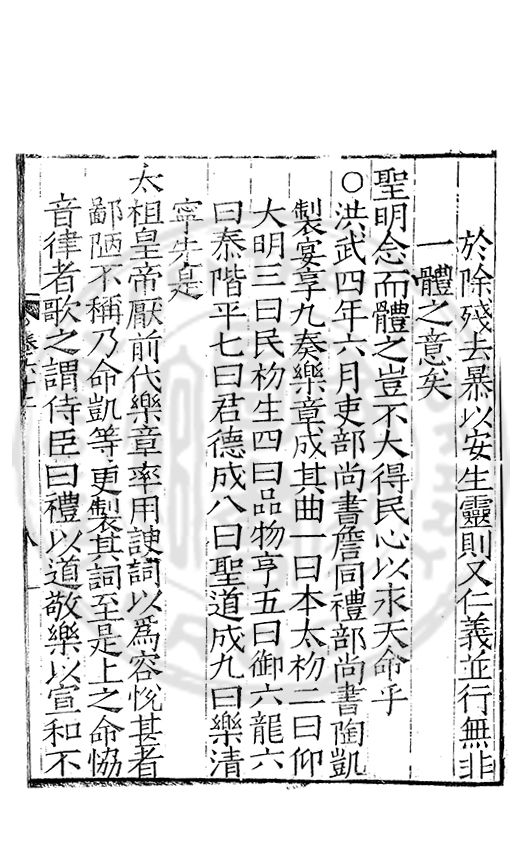 於除殘去暴以安生靈則又仁義並行無非
一體之意矣
聖明念而體之豈不大得民心以永天命乎
○洪武四年六月吏部尚書詹同禮部尚書陶凱
製宴享九奏樂章成其曲一曰本太初二曰仰
大明三曰民初生四曰品物亨五曰御六龍六
曰泰階平七曰君德成八曰聖道成九曰樂清
寧先是
太祖皇帝厭前代樂章率用諛詞以為容悅甚者
鄙陋不稱乃命凱等更製其詞至是上之命恊
音律者歌之謂侍臣曰禮以道敬樂以宣和不